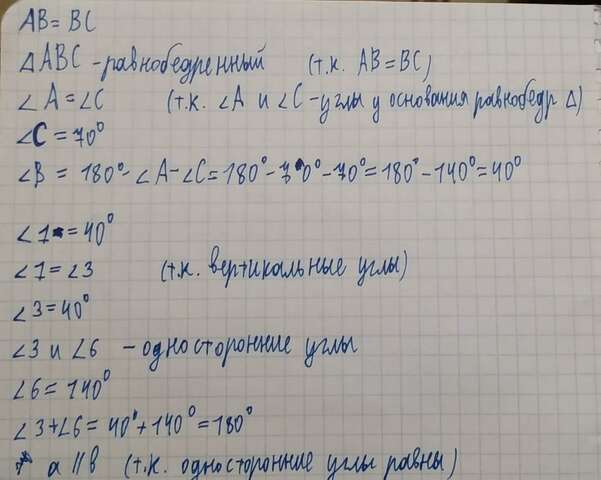 AB = BC
ΔABC - равнобедренный (т.к. AB = BC)
∠A = ∠C (т.к. ∠A и ∠C - углы у основания равнобедр Δ)
∠C = 70°
∠B = 180° - ∠A - ∠C = 180° - 70° - 70° = 180° - 140° = 40°
∠1 = 40°
∠1 = ∠3 (т.к. вертикальные углы)
∠3 = 40°
∠3 и ∠6 - односторонние углы
∠6 = 140°
∠3 + ∠6 = 40° + 140° = 180°
a || b (т.к. односторонние углы равны)